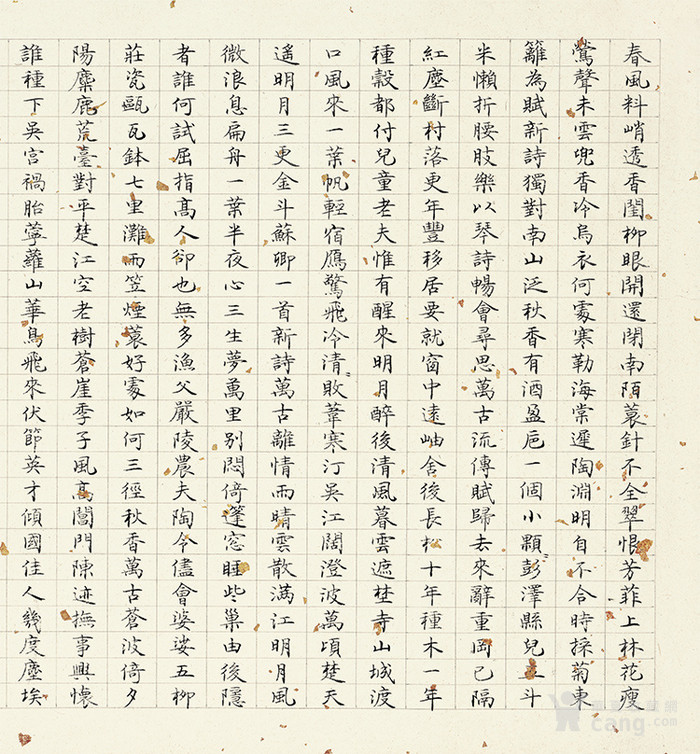 春風料峭透香閨柳眼開還閉南陌蓑針不全翠恨芳菲上林花瘦
鶯聲未雲兜香冷烏衣何處寒勒海棠遲陶淵明自不合時採菊東
籬為賦新詩獨對南山泛秋香有酒盈卮一個小顆〻彭澤縣兒五斗
米懶折腰肢樂以琴詩暢會尋思萬古流傳賦歸去來辭重岡已隔
紅塵斷村落更年豐移居要就窗中遠岫舍後長松十年種木一年
種穀都付兒童老夫惟有醒來明月醉後清風暮雲遮埜寺山城渡
口風來一葉帆輕宿鴈驚飛冷清〻敗葦寒汀吳江闊澄波萬頃楚天
遙明月三更金斗蘇卿一首新詩萬古離情雨晴雲散滿江明月風
微浪息扁舟一葉半夜心三生夢萬里別悶倚篷窓睡些巢由後隱
者誰何試屈指高人卻也無多漁父嚴陵農夫陶令儘會婆娑五柳
莊瓷甌瓦鉢七里灘雨笠煙蓑好處如何三徑秋香萬古蒼波倚夕
陽麋鹿荒臺對平楚江空老樹蒼崖季子風高闔門陳迹撫事興懷
誰種下吳宮禍胎薴蘿山華鳥飛來伏節英才傾國佳人幾度塵埃